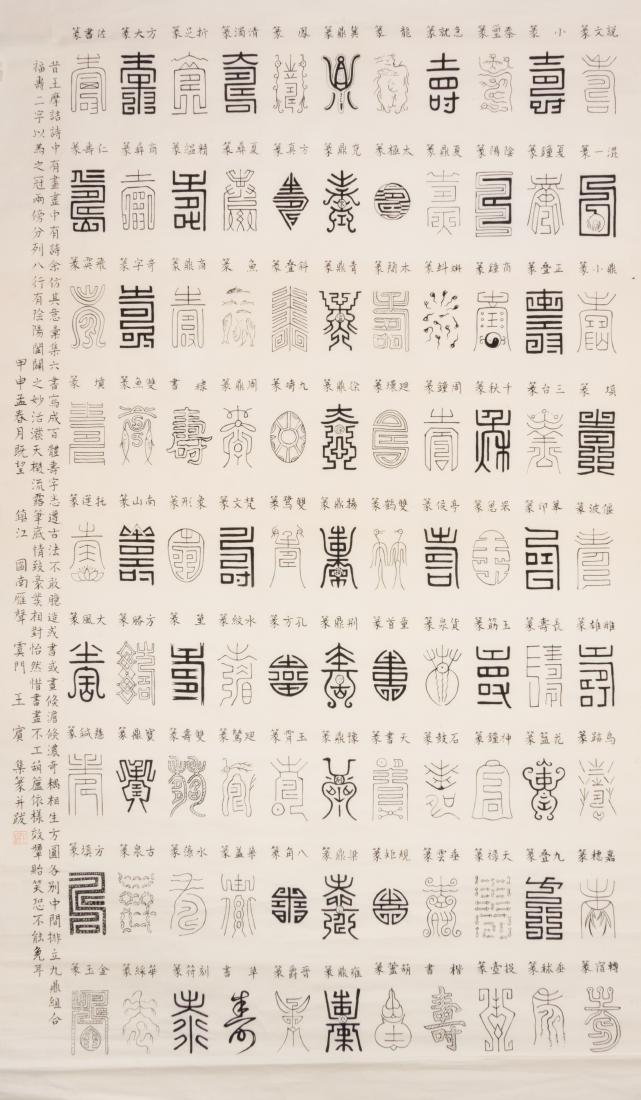 說文篆 小篆 秦璽篆 急就篆 龍篆 冀鼎篆 鳳篆 清濁篆 折足篆 方大篆 佐書篆
混一篆 夏鐘篆 陰陽篆 夏鼎篆 太極篆 兗鼎篆 方真篆 夏彝篆 精蘊篆 商彝篆 仁壽篆
鼎小篆 正疊篆 商鐘篆 蝌蚪篆 木簡篆 青鼎篆 斜疊篆 魚篆 商鼎篆 奇字篆 飛雲篆
填篆 三台篆 千秋篆 周鐘篆 迴環篆 徐鼎篆 九疇篆 周鼎篆 隸書 雙魚篆 墳篆
偃波篆 摹印篆 罘罳篆 亭侯篆 雙鶴篆 揚鼎篆 雙鷺篆 梵文篆 象形篆 南山篆 托蓮篆
雌雄篆 長壽篆 玉筯篆 貨泉篆 重首篆 荆鼎篆 孔方篆 水紋篆 篆 方勝篆 大風篆
鳥跡篆 花籃篆 神鐘篆 石鼓篆 天書篆 豫鼎篆 玉霄篆 迴鸞篆 雙壽篆 寶鼎篆 懸鍼篆
嘉穗篆 九疊篆 天祿篆 垂雲篆 規矩篆 梁鼎篆 八角篆 華蓋篆 古泉篆 方填篆
轉宿篆 投壺篆 楷書 葫蘆篆 雍鼎篆 晉爵篆 草書 刻符篆 華綵篆 金玉篆
昔王摩詰詩中有畫畫中有詩余仿其意彙集六書寫成百體壽字悉遵古法不敢臆造或書或畫倏澹倏濃奇耦相生方圓各別中間排立九鼎組合
福壽二字以為之冠兩傍分列八行有陰陽闔闢之妙活潑天機流露筆底情致相對怡然惜書畫不工葫蘆依樣效顰貽笑恐不能免耳
甲申孟春月既望 鎮江 圖南雁聲 虞門 王賓 集篆并跋